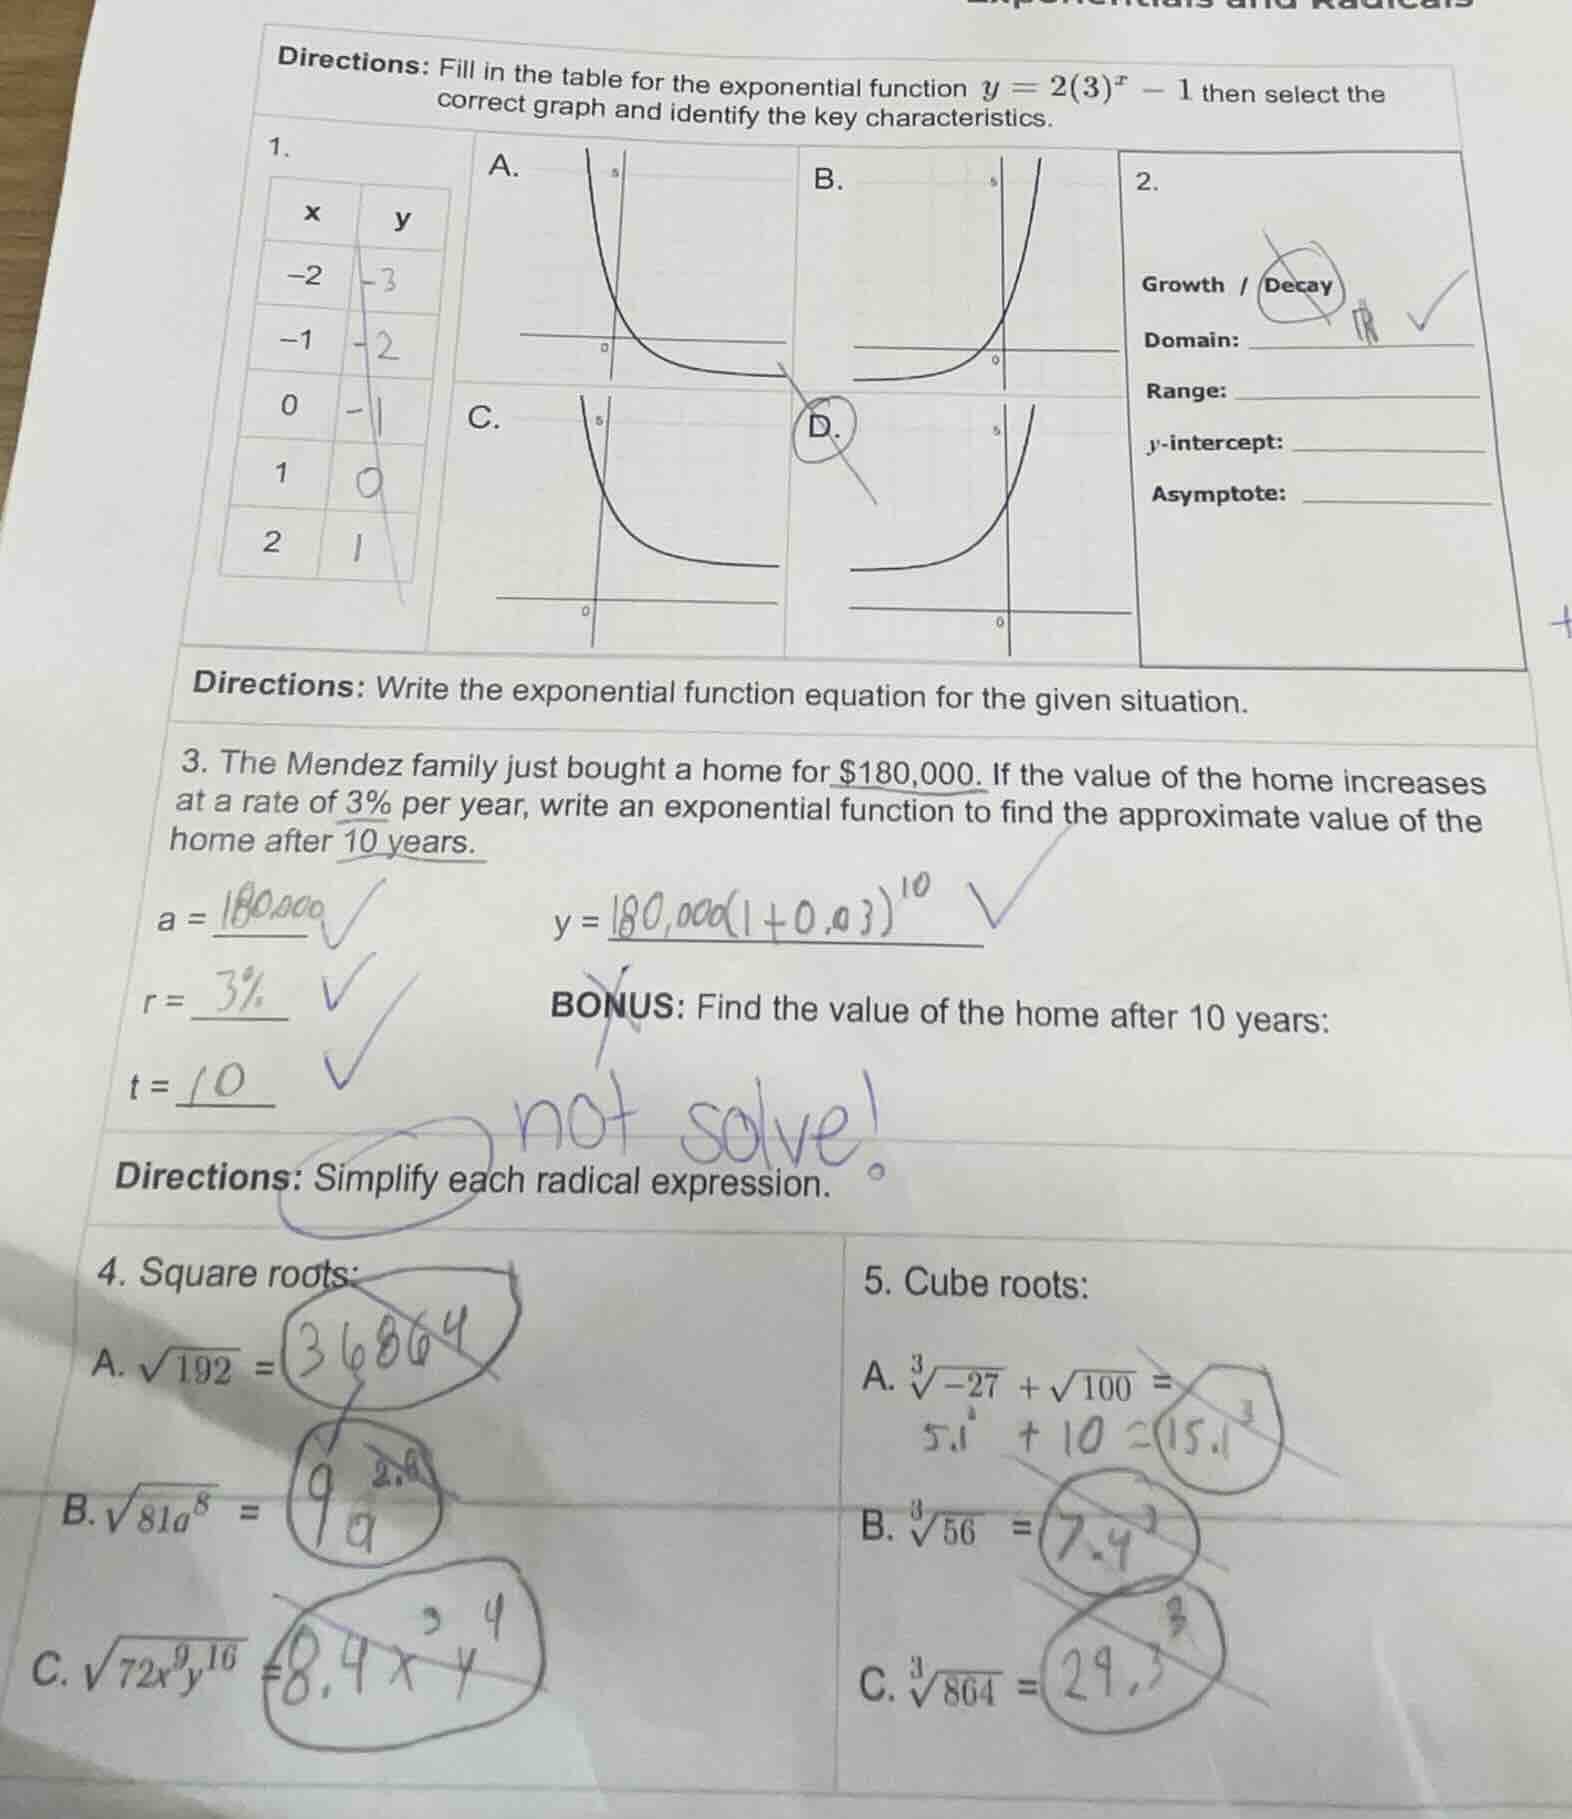 Exponentials and Radicals
Directions: Fill in the table for the exponential function y = 2(3)^x − 1 then select the
correct graph and identify the key characteristics.
1.
x y
−2 -3
−1 -2
0 -1
1 0
2 1
A.
5
0
B.
5
0
C.
5
0
D.
5
0
2.
Growth / Decay
Domain: ℝ
Range:
y-intercept:
Asymptote:
Directions: Write the exponential function equation for the given situation.
3. The Mendez family just bought a home for $180,000. If the value of the home increases
at a rate of 3% per year, write an exponential function to find the approximate value of the
home after 10 years.
a = 180,000
y = 180,000(1+0.03)^10
r = 3%
BONUS: Find the value of the home after 10 years:
t = 10
not solve!
Directions: Simplify each radical expression.
4. Square roots:
A. √192 = 36864
B. √81a^8 = 9a
C. √72x^9y^16 = 8.4x^3y^4
5. Cube roots:
A. ∛−27 + √100 =
5.1 + 10 = 15.1^3
B. ∛56 = 7.4^3
C. ∛864 = 29.3^3
+